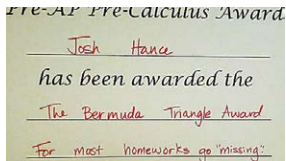 Pre-AP Pre-Calculus Award
Josh Hance
has been awarded the
The Bermuda Triangle Award
For most homeworks go "missing".